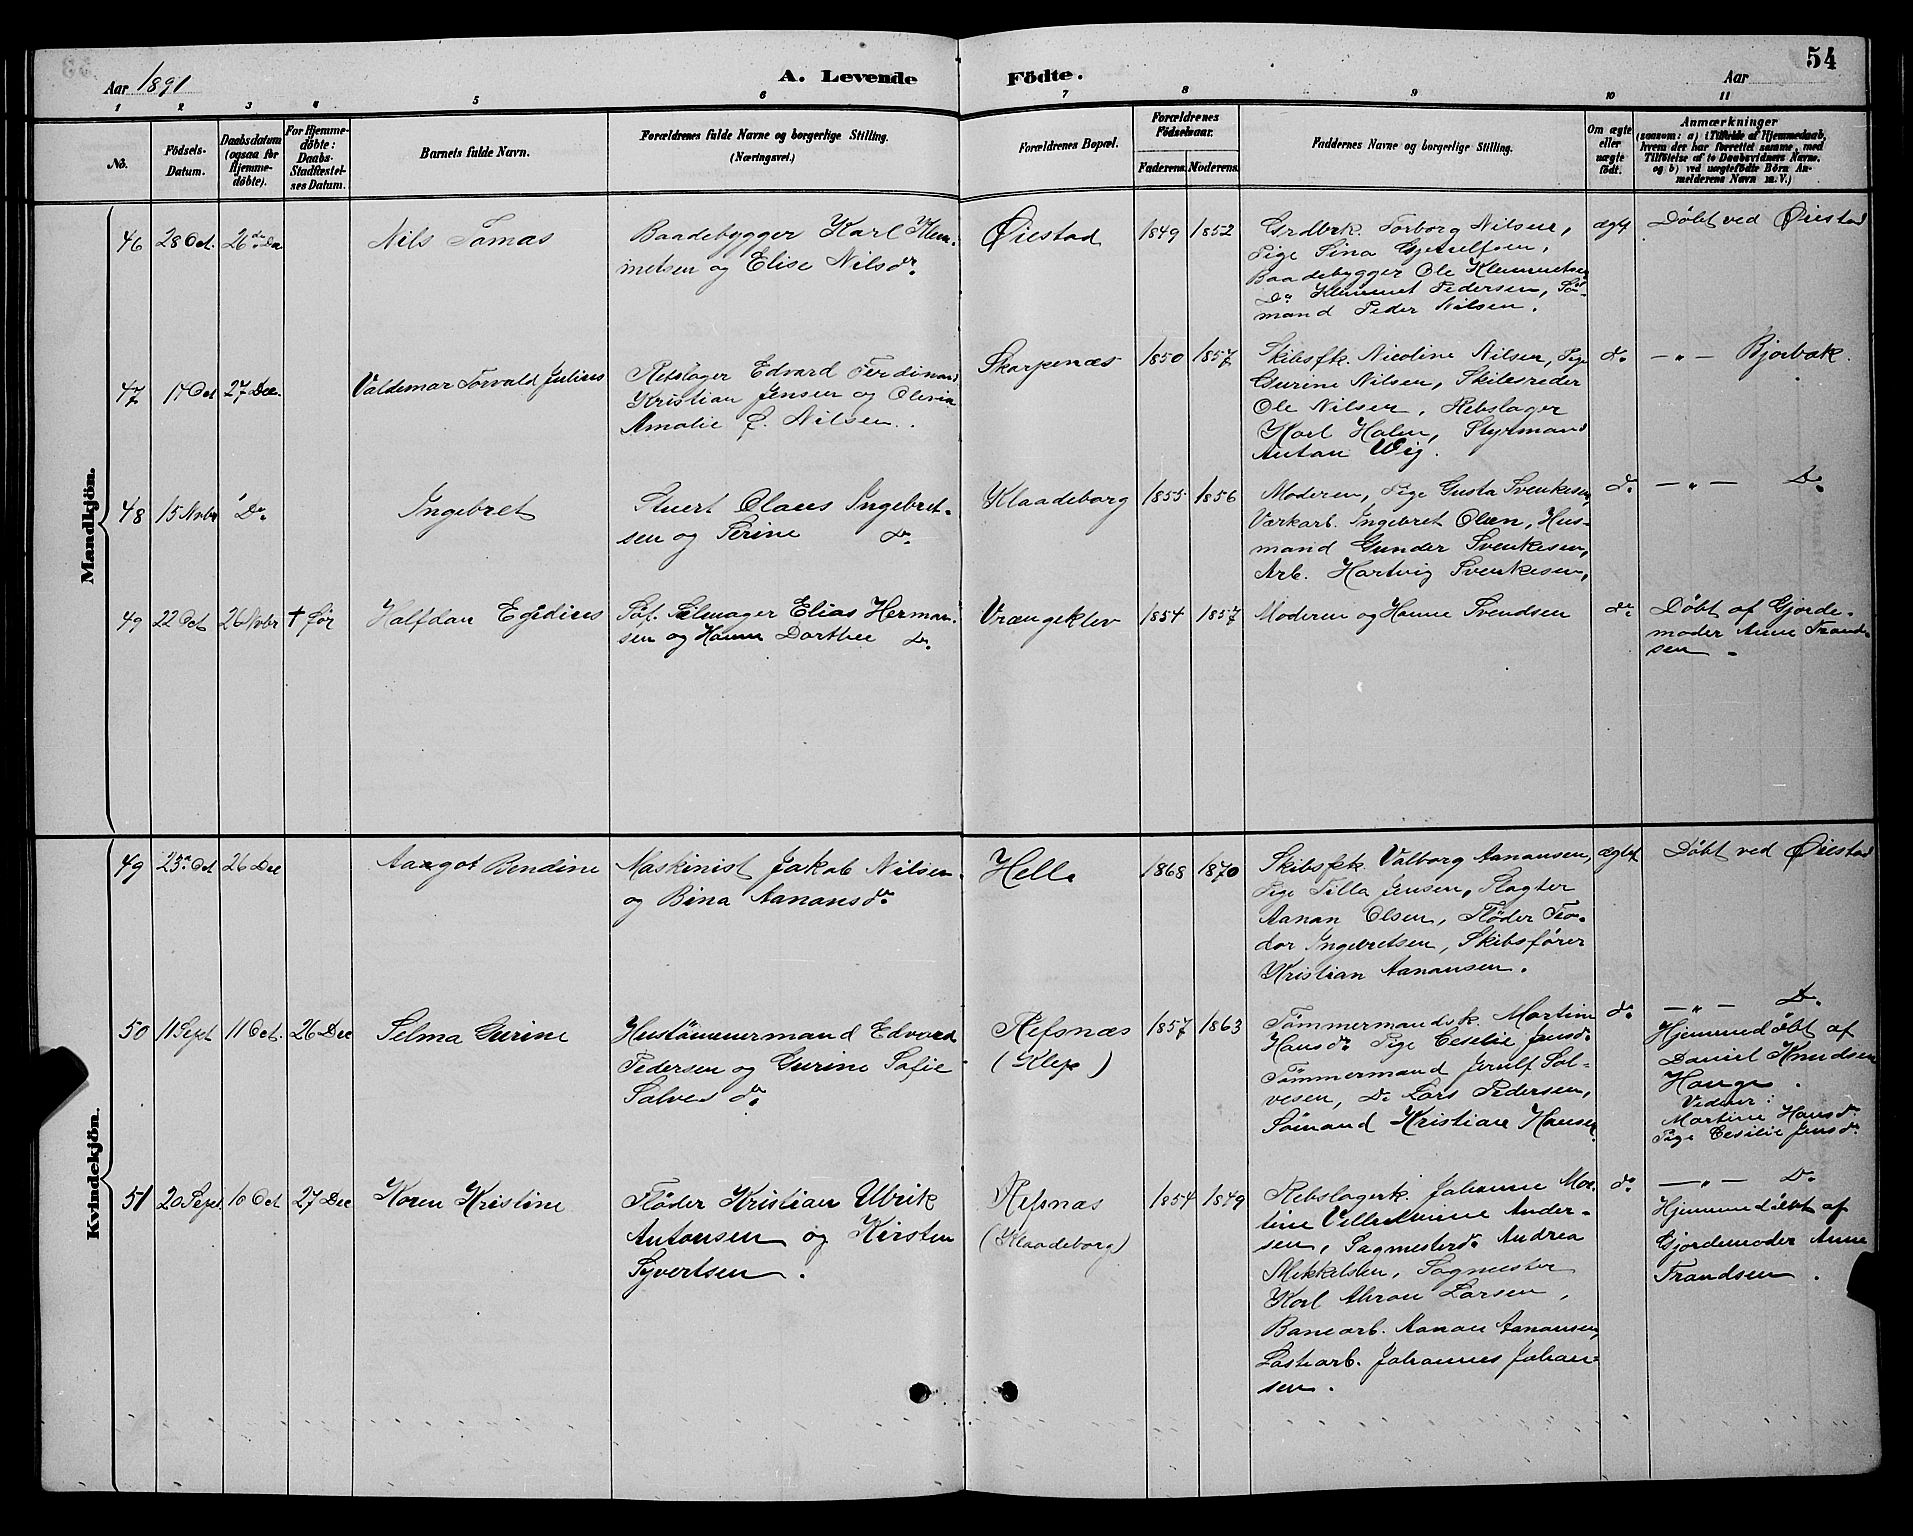 54
Aar 1891
A. Levende Födte.
Aar
1 2 3 4 5 6 7 8 9 10 11
No.
Födsels-Datum.
Daabsdatum (ogsaa for Hjemme-döbte).
For Hjemme-döbte: Daabs-Stadfæstelses Datum.
Barnets fulde Navn.
Forældrenes fulde Navne og borgerlige Stilling.
(Næringsvei.)
Forældrenes Bopæl.
Forældrenes Födselsaar.
Faderens. Moderens.
Faddernes Navne og borgerlige Stilling.
Om ægte eller uægte födt.
Anmærkninger
(saasom: a) i Tilfælde af Hjemmedaab, hvem der har forrettet samme, med Tilföielse af to Daabsvidners Navne, og b) ved uægtefödte Börn Anmelderens Navn m. V.)
Mandkjön.
46 28 Oct. 26de De
Nils Tomas
Baadebygger Karl Klem-
metsen og Elise Nilsdr.
Øiestad
1849 1852
Grdbrk. Torborg Nilsen,
Pige Sina Gjerulfsen,
Baadebygger Ole Klemmetsen
Do Klemmet Pedersen, Sö-
mand Peder Nilsen.
ægt
Döbt ved Øiestad
47 17 Oct 27 Dec.
Valdemar Torvald Julius
Rebslager Edvard Ferdinand
Kristian Jensen og Olevia
Amalie f. Nilsen.
Skarpenæs
1850 1857
Skibsfk. Nicoline Nilsen, Pige
Gurine Nilsen, Skibsreder
Ole Nilsen, Rebslager
Karl Holm, Styrmand
Anton Wig.
do
— " — Bjorbæk.
48 15 Novbr Do
Ingebret
Stuert Olaus Ingebret-
sen og Serine do
Klaadeborg
1855 1856
Moderen, Pige Gusta Svenkesen,
Værkarb. Ingebret Olsen, Hus-
mand Gunder Svenkesen,
Arb. Hartvig Svenkesen,
do
— " — Do
49 22 Oct 26 Novbr † för
Halfdan Egidius
Söf. Seilmager Elias Herman-
sen og Hanne Dorthee do
Vrangeklev
1854 1857
Moderen og Hanne Svendsen
do
Döbt af Gjorde-
moder Anne Trand-
sen
Kvindekjön.
49 25 Oct 26 Dec
Aangot Bendine
Maskinist Jakob Nilsen
og Bina Aanonsdr.
Helle
1868 1870
Skibsfk. Valborg Aanansen,
Pige Tilla Jensen, Slagter
Aanan Olsen, Flöder Teo-
dor Ingebretsen, Skibsförer
Kristian Aanansen.
ægte
Döbt ved Øiestad
50 11 Sept 11 Oct. 26 Dec
Selma Gurine
Hustömmermand Edvard
Pedersen og Gurine Sofie
Salvesdr.
Refsnæs
(Klep)
1857 1863
Tömmermandsk. Martine
Hansdr. Pige Cesilie Jensdr.
Tömmermand Jerulf Sal-
vesen, Do Lars Pedersen,
Sömand Kristian Hansen
do
— " — Do
Hjemmedöbt af
Daniel Knudsen
Hauge.
Vidner:
Martine Hansdr.
Pige Cesilie Jensdr.
51 20 Sept 10 Oct 27 Dec
Karen Kristine
Flöder Kristian Ulrik
Antonsen og Kirsten
Syvertsen.
Refsnæs
(Klaadeborg)
1854 1849
Rebslagerk. Johanne Mar-
tine Villumine Ander-
sen, Sagmesterdr. Andrea
Mikkelsen, Sagmester
Karl Abron Larsen,
Banearb. Aanon Aanonsen,
Lastearb. Johannes Johan-
sen.
do
— " — Do
Hjemmedöbt af
Gjordemoder Anne
Trandsen.